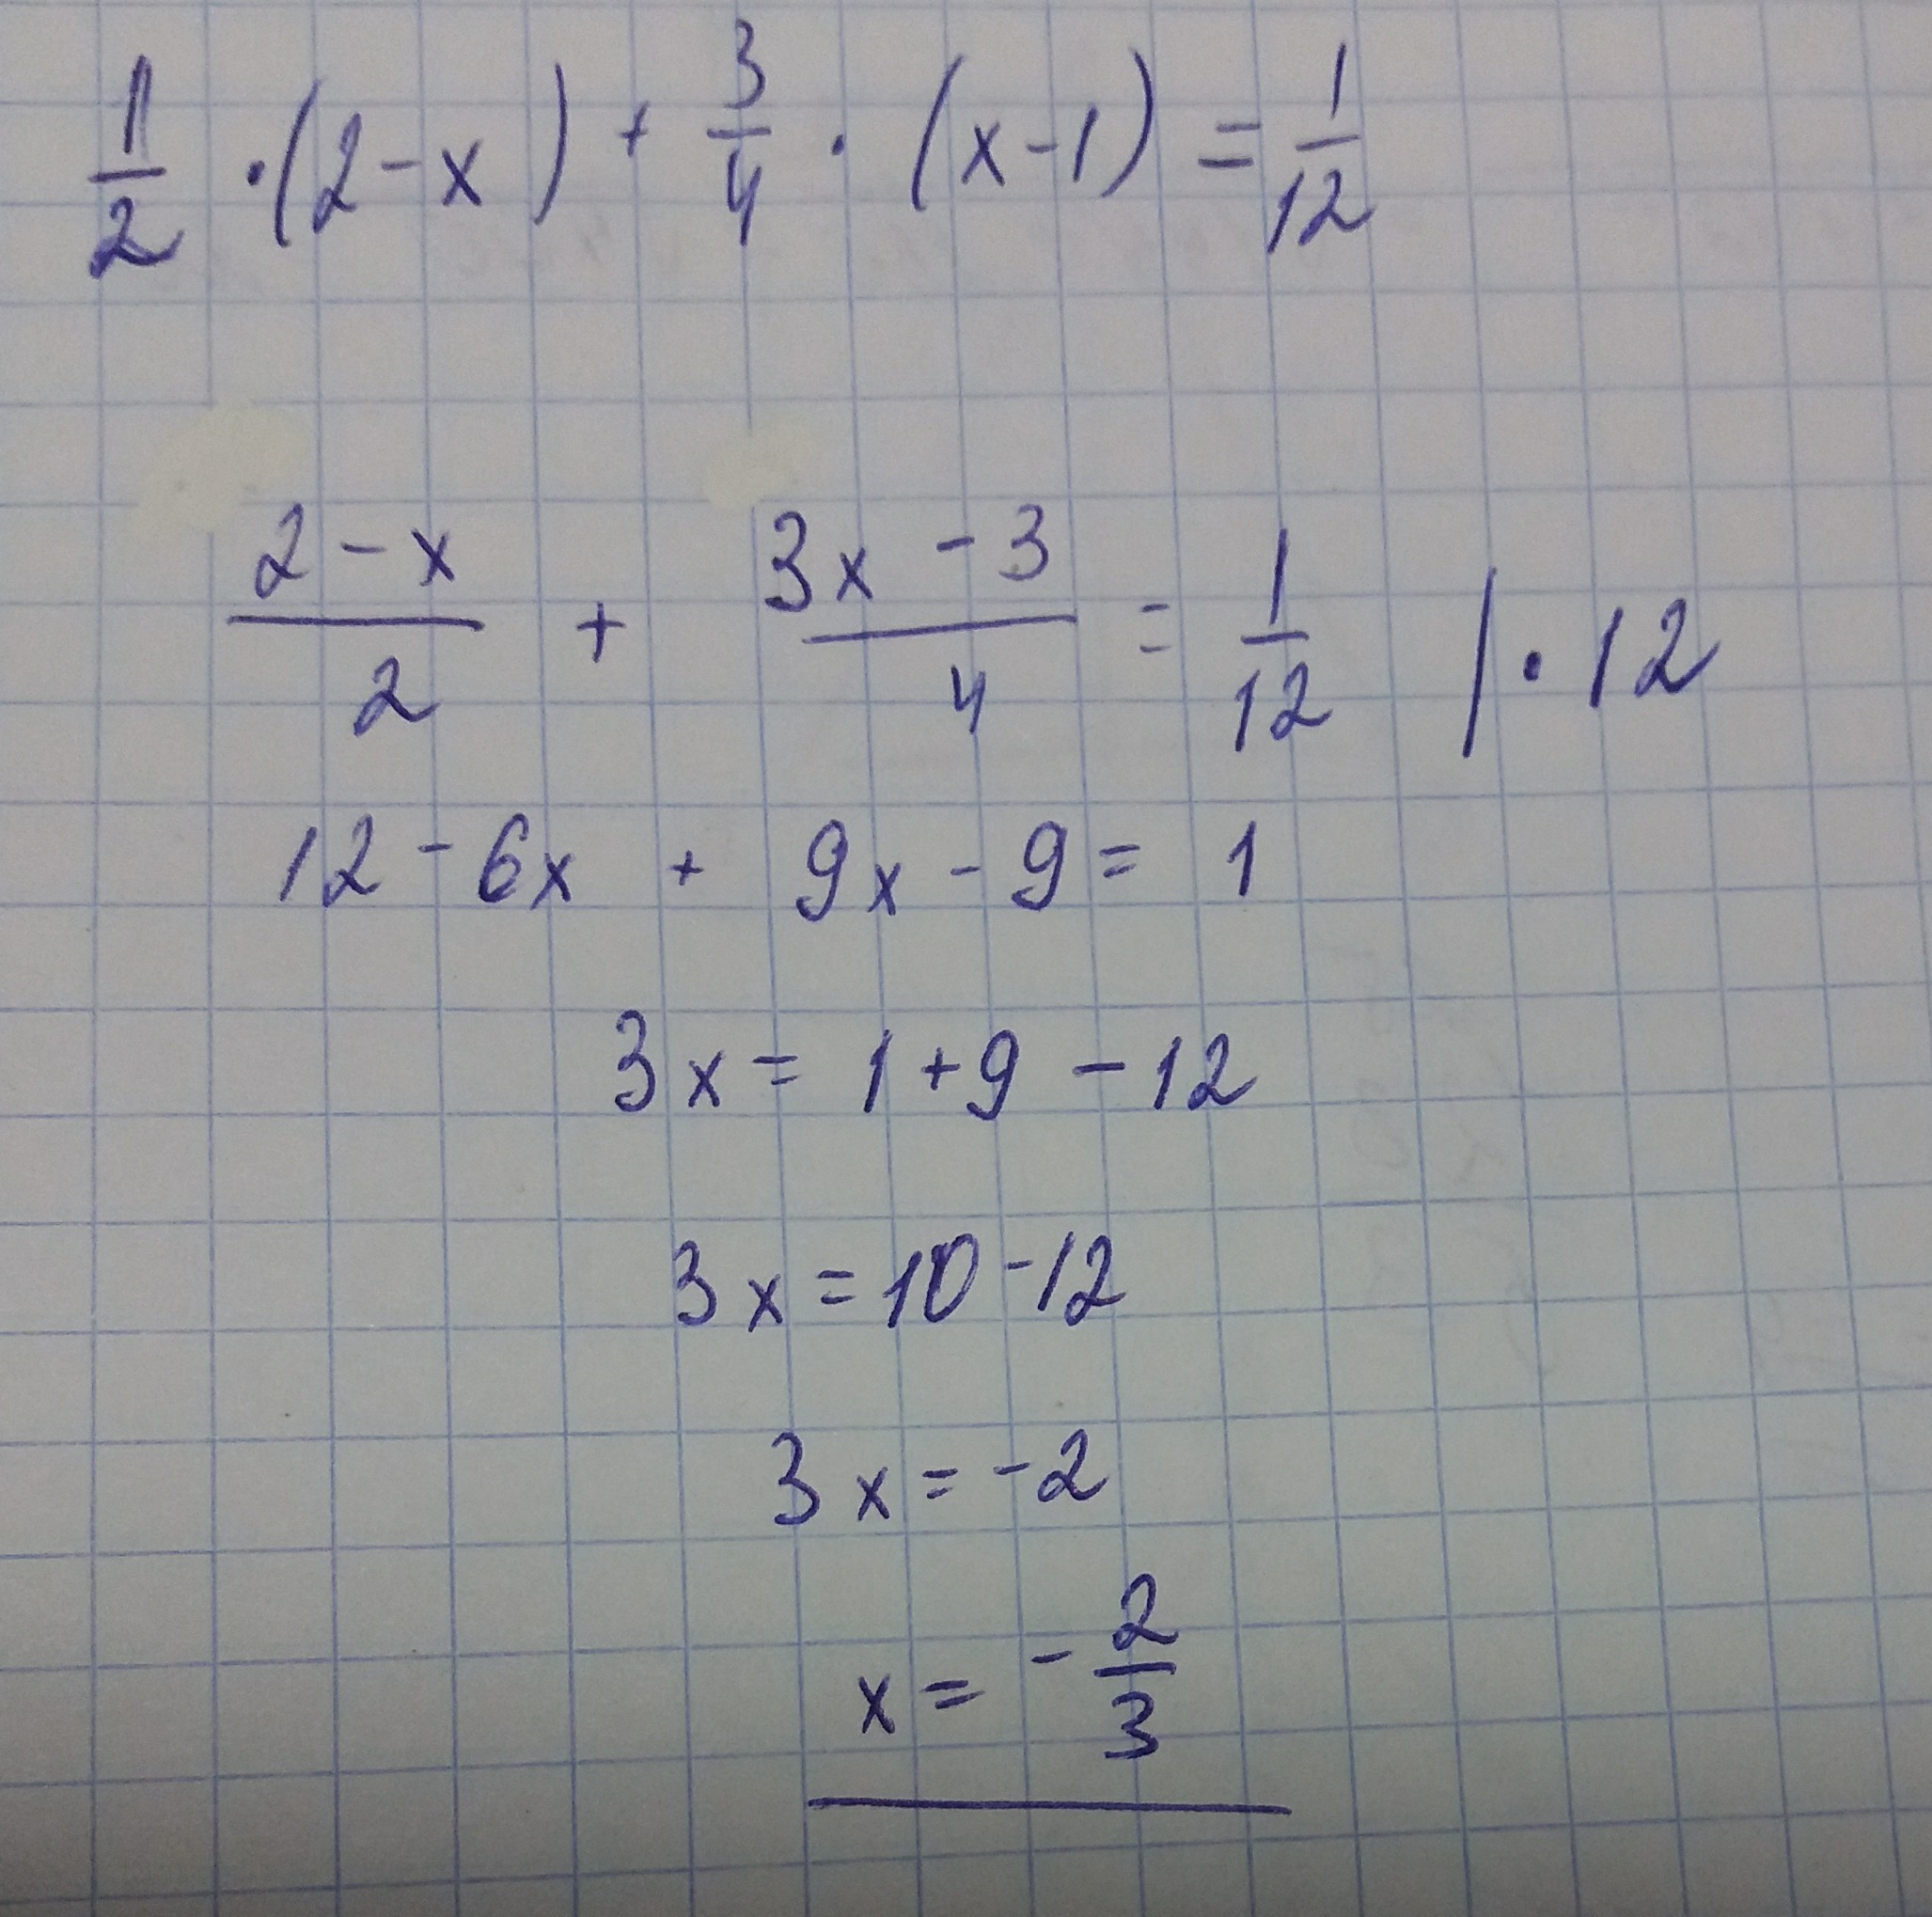 1/2 · (2 - x) + 3/4 · (x - 1) = 1/12
(2 - x)/2 + (3x - 3)/4 = 1/12 | · 12
12 - 6x + 9x - 9 = 1
3x = 1 + 9 - 12
3x = 10 - 12
3x = -2
x = - 2/3